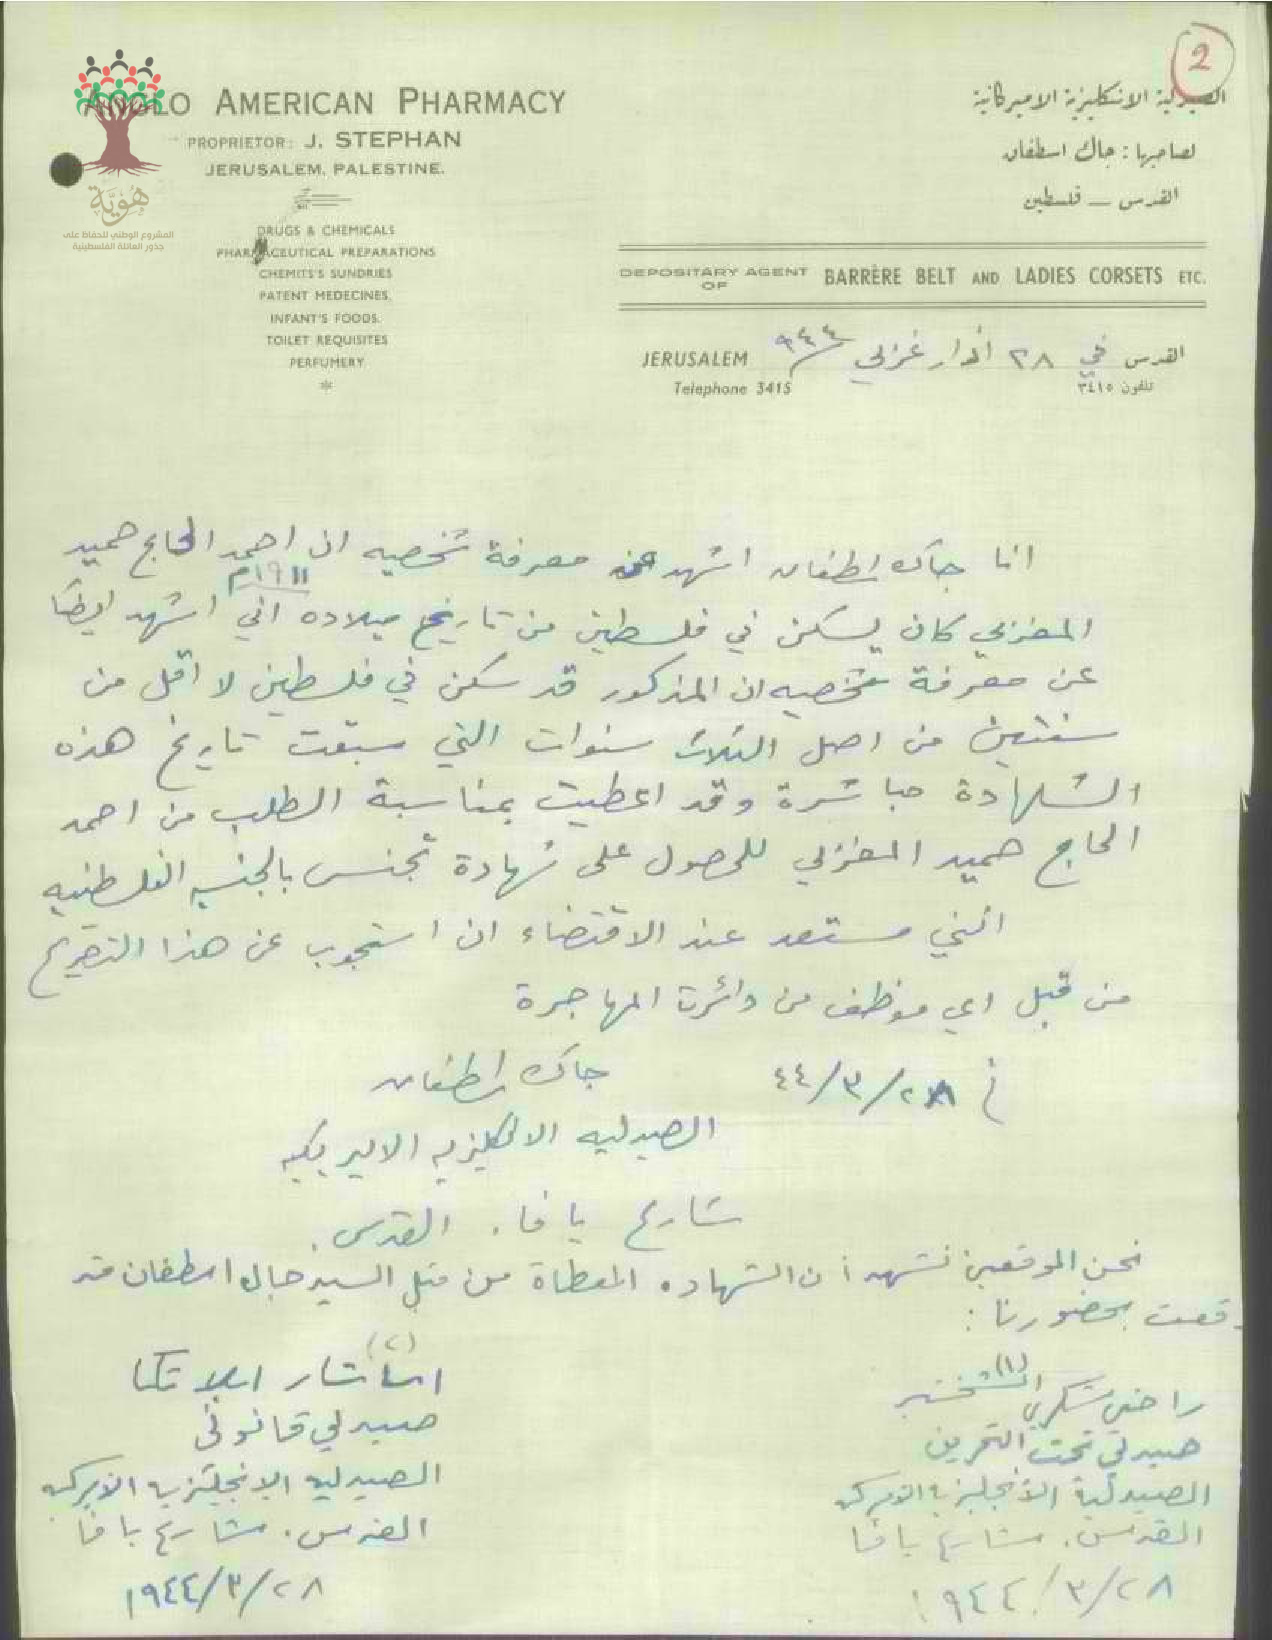 2
ANGLO AMERICAN PHARMACY
PROPRIETOR: J. STEPHAN
JERUSALEM, PALESTINE.
DRUGS & CHEMICALS
PHARMACEUTICAL PREPARATIONS
CHEMITS'S SUNDRIES
PATENT MEDECINES,
INFANT'S FOODS.
TOILET REQUISITES
PERFUMERY
هُوِيَّة
المشروع الوطني للحفاظ على
جذور العائلة الفلسطينية
الصيدلية الانكليزية الاميركانية
لصاحبها : جاك اسطفان
القدس — فلسطين
DEPOSITARY AGENT OF BARRÈRE BELT AND LADIES CORSETS ETC.
JERUSALEM القدس في ٢٨ أذار غربي ٩٤٤
Telephone 3415 تلفون ٣٤١٥
انا جاك اسطفان اشهد عن معرفة شخصيه ان احمد الحاج حميد
١٩١١م
المغربي كان يسكن في فلسطين من تاريخ ميلاده اني اشهد ايضا
عن معرفة شخصيه ان المذكور قد سكن في فلسطين لا اقل من
سنتين من اصل الثلاث سنوات التي سبقت تاريخ هذه
الشهادة مباشرة وقد اعطيت بمناسبة الطلب من احمد
الحاج حميد المغربي للحصول على شهادة تجنس بالجنسيه الفلسطنيه
انني مستعد عند الاقتضاء ان استجوب عن هذا التصريح
من قبل اي موظف من دائرة المهاجرة
في ٤٤/٣/٢٨ جاك اسطفان
الصيدليه الانكليزيه الاميريكيه
شارع يافا. القدس.
نحن الموقعين نشهد أن الشهاده المعطاة من قبل السيد جاك اسطفان قد
وقعت بحضورنا :
(١)
راضي شكري
صيدلي تحت التمرين
الصيدلية الانجليزية الاميركيه
القدس. شارع يافا
١٩٤٤/٣/٢٨
(٢)
صيدلي قانوني
الصيدليه الانجليزيه الاميركيه
القدس. شارع يافا
١٩٤٤/٣/٢٨